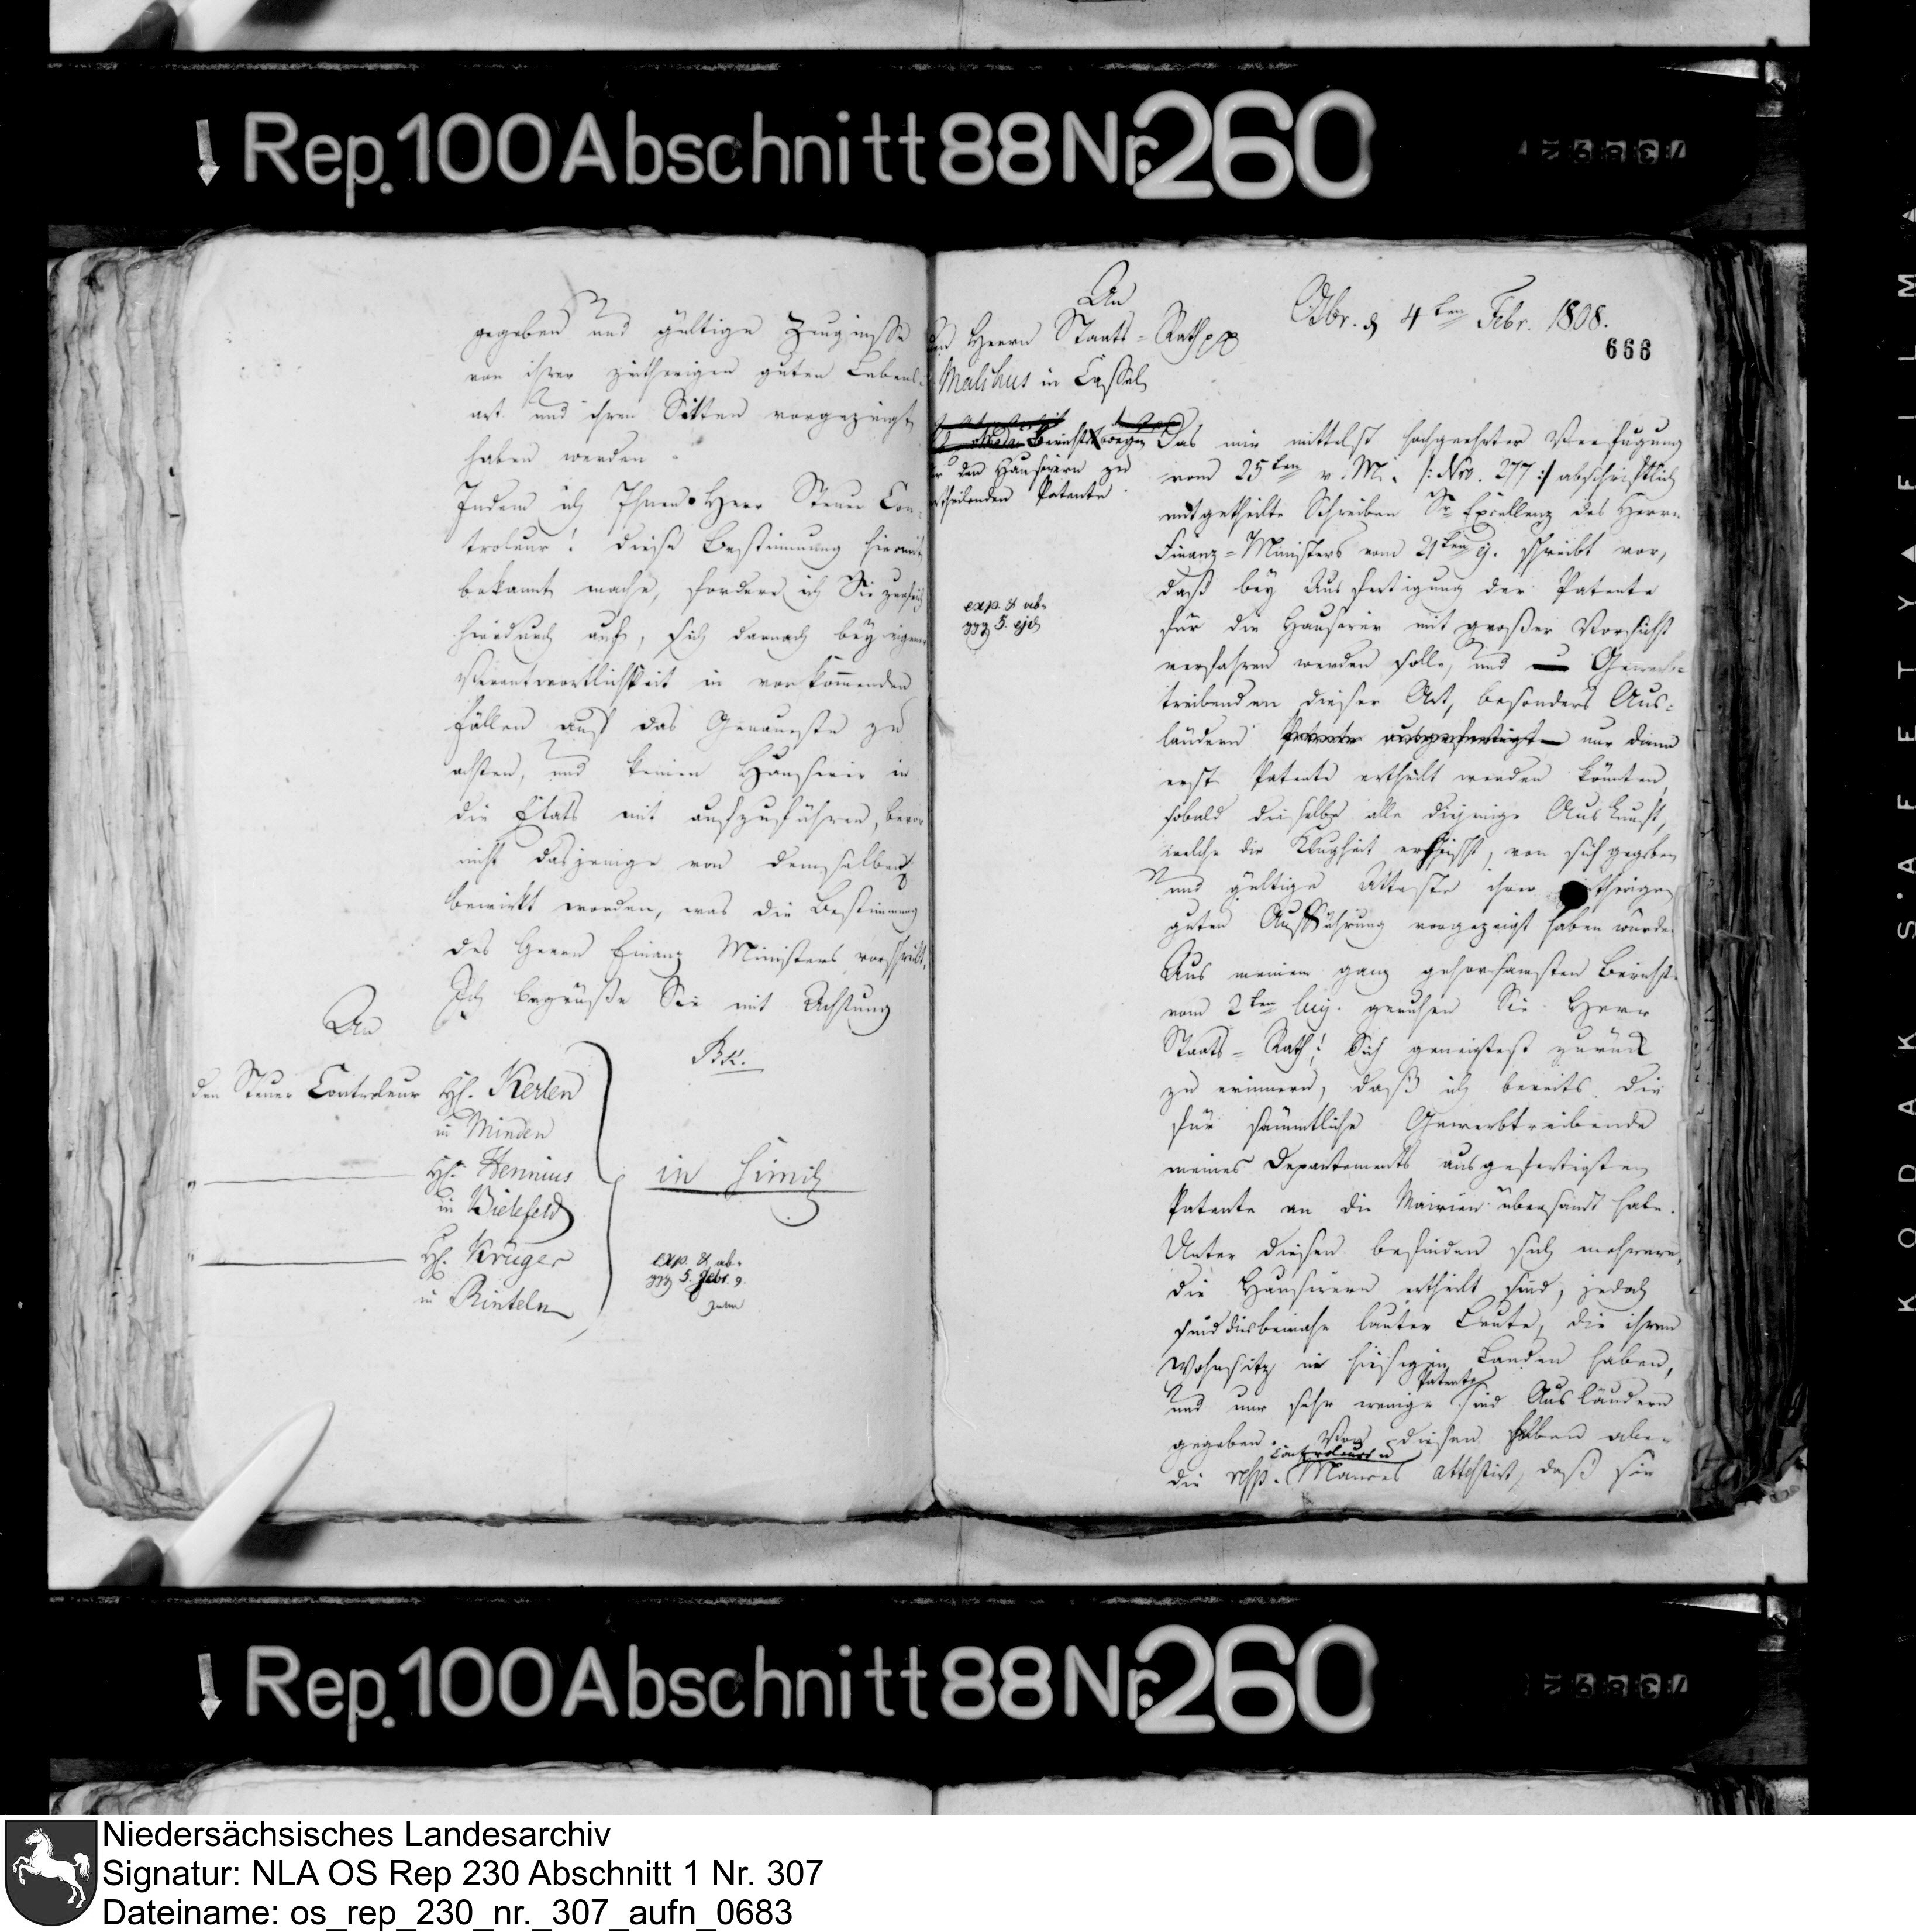 Rep. 100 Abschnitt 88 Nr. 260
gegeben und gültige Zeugnisse
von ihrer zeitherigen guten Lebens-
art und ihren Sitten vorgezeigt
haben werden.
Indem ich Ihnen Herr Steuer Con-
troleur! diese Bestimmung hiermit
bekannt mache, fordere ich Sie zugleich
hierdurch auf, sich darnach bey eigener
Verantwortlichkeit in vorkommenden
Fällen auf das Genaueste zu
achten, und keinen Hausierer in
die Etats mit aufzuführen, bevor
nicht dasjenige von demselben
bewirkt worden, was die Bestimmung
des Herrn Finanz Ministers vorschreibt.
Ich begrüße Sie mit Achtung
An
den Steuer Controleur H. Kerlen
in Minden
H. Hennius
in Bielefeld
H. Krüger
in Rinteln
in simili
exp. & ab-
5. Febr.
An
Herrn Staats-Rath
Malchus in Cassel
Bericht wegen
den Hausierern zu
ertheilenden Patente.
exp. & ab-
5. ej.
Osbr. d 4ten Febr. 1808.
668
Das mir mittelst hochgeehrter Verfügung
vom 25ten v. M. /: Nro. 277 :/ abschriftlich
mitgetheilte Schreiben Sr. Excellenz des Herrn
Finanz-Ministers vom 21ten ej. schreibt vor,
daß bey Ausfertigung der Patente
für die Hausierer mit großer Vorsicht
verfahren werden solle, und Gewerb-
treibenden dieser Art, besonders Aus-
ländern nur dann
erst Patente ertheilt werden könnten,
sobald dieselbe alle diejenige Auskunft,
welche die Klugheit erheischt, von sich gegeben
und gültige Atteste ihrer zeitherigen
guten Aufführung vorgezeigt haben würden
Aus meinem ganz gehorsamsten Bericht
vom 2ten huj. geruhen Sie Herr
Staats-Rath! Sich geneigtest zurück
zu erinnern, daß ich bereits die
für sämmtliche Gewerbtreibende
meines Departements ausgefertigten
Patente an die Mairien übersandt habe.
Unter diesen befinden sich mehrere,
die Hausirern ertheilt sind, jedoch
sind dies beinahe lauter Leute, die ihren
Wohnsitz in hiesigen Landen haben,
und nur sehr wenige Patente sind Ausländern
gegeben. Von diesen haben aber
die resp. Controleurs u Maires attestirt, daß sie
Rep. 100 Abschnitt 88 Nr. 260
KODAK SAFETY FILM
Niedersächsisches Landesarchiv
Signatur: NLA OS Rep 230 Abschnitt 1 Nr. 307
Dateiname: os_rep_230_nr._307_aufn_0683